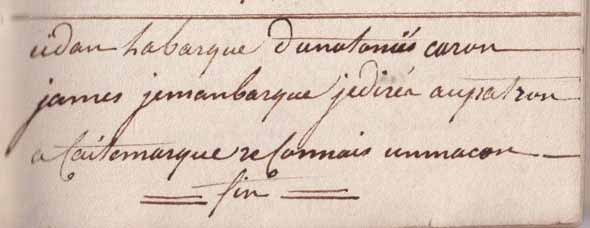 udan labarque dunotonies caron
james jemanbarque jedirés aupatron
a Cailemarque reConnais unmacon
fin